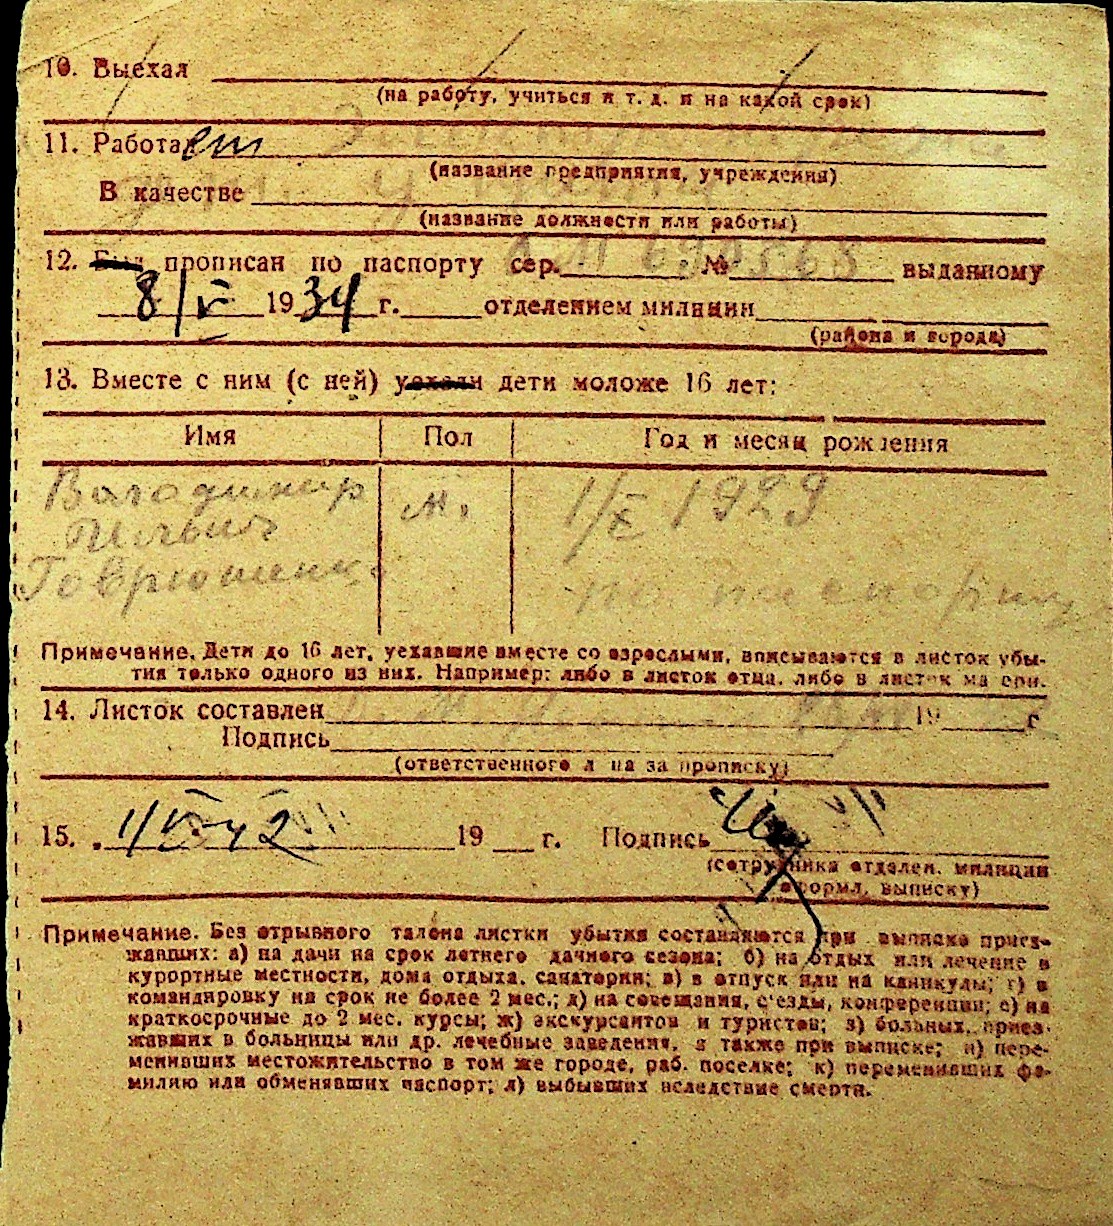 10. Выехал
(на работу, учиться и т. д. и на какой срок)
11. Работает
(название предприятия, учреждения)
В качестве
(название должности или работы)
12. Был прописан по паспорту сер. № выданному
8/V 1934 г. отделением милиции
(района и города)
13. Вместе с ним (с ней) уехали дети моложе 16 лет:
Имя Пол Год и месяц рождения
Володимир м. 1/X 1929
Ильич
Примечание. Дети до 16 лет, уехавшие вместе со взрослыми, вписываются в листок убы-
тия только одного из них. Например: либо в листок отца, либо в листок матери.
14. Листок составлен 19 г
Подпись
(ответственного лица за прописку)
15. 1/VI-42 19 г. Подпись
(сотрудника отделен. милиции
оформл. выписку)
Примечание. Без отрывного талона листки убытия составляются при выписке приез-
жавших: а) на дачи на срок летнего дачного сезона; б) на отдых или лечение в
курортные местности, дома отдыха, санатории; в) в отпуск или на каникулы; г) в
командировку на срок не более 2 мес.; д) на совещания, с'езды, конференции; е) на
краткосрочные до 2 мес. курсы; ж) экскурсантов и туристов; з) больных, приез-
жавших в больницы или др. лечебные заведения, а также при выписке; и) пере-
менивших местожительство в том же городе, раб. поселке; к) переменивших фа-
милию или обменявших паспорт; л) выбывших вследствие смерти.